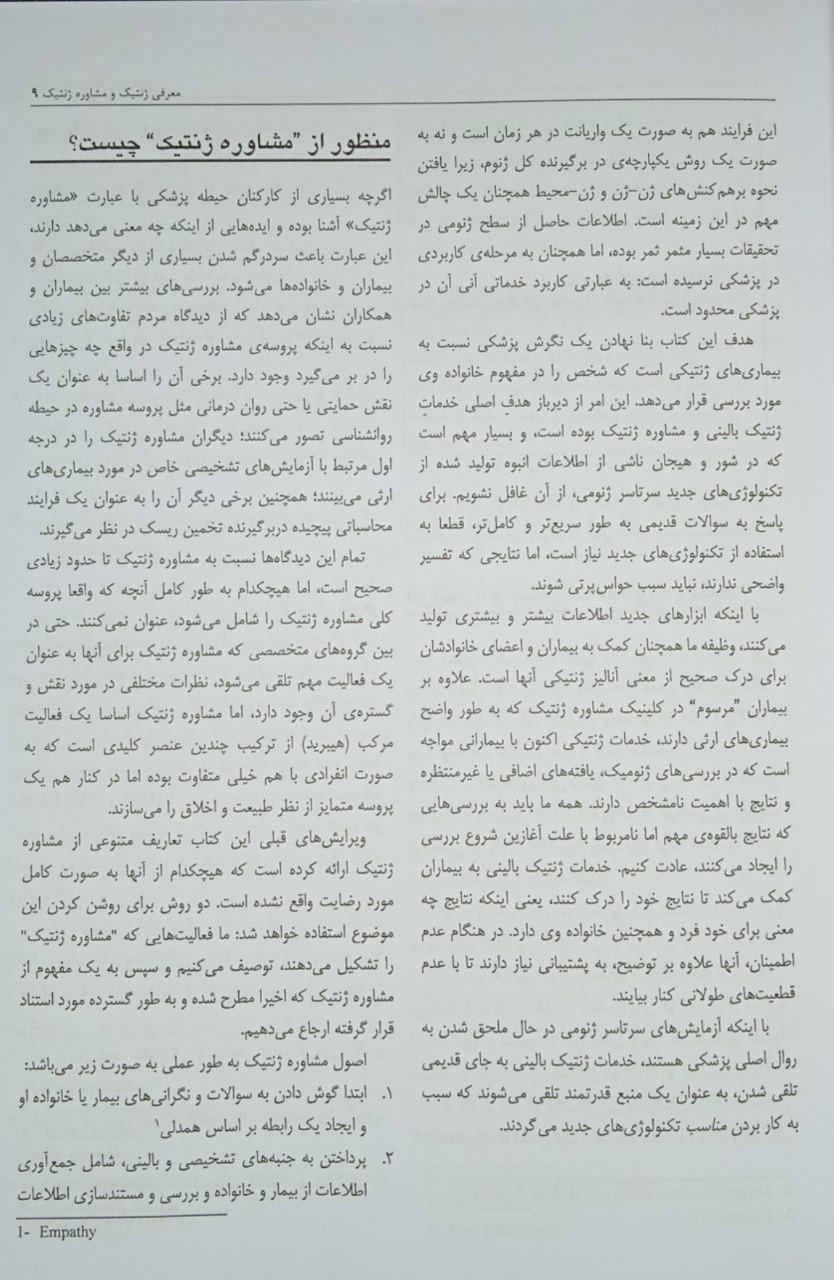 معرفی ژنتیک و مشاوره ژنتیک ۹
این فرایند هم به صورت یک واریانت در هر زمان است و نه به
صورت یک روش یکپارچه‌ی در برگیرنده کل ژنوم، زیرا یافتن
نحوه برهم‌کنش‌های ژن-ژن و ژن-محیط همچنان یک چالش
مهم در این زمینه است. اطلاعات حاصل از سطح ژنومی در
تحقیقات بسیار مثمر ثمر بوده، اما همچنان به مرحله‌ی کاربردی
در پزشکی نرسیده است: به عبارتی کاربرد خدماتی آنی آن در
پزشکی محدود است.
هدف این کتاب بنا نهادن یک نگرش پزشکی نسبت به
بیماری‌های ژنتیکی است که شخص را در مفهوم خانواده وی
مورد بررسی قرار می‌دهد. این امر از دیرباز هدفِ اصلی خدماتِ
ژنتیک بالینی و مشاوره ژنتیک بوده است، و بسیار مهم است
که در شور و هیجان ناشی از اطلاعات انبوه تولید شده از
تکنولوژی‌های جدید سرتاسر ژنومی، از آن غافل نشویم. برای
پاسخ به سوالات قدیمی به طور سریع‌تر و کامل‌تر، قطعا به
استفاده از تکنولوژی‌های جدید نیاز است، اما نتایجی که تفسیر
واضحی ندارند، نباید سبب حواس‌پرتی شوند.
با اینکه ابزارهای جدید اطلاعات بیشتر و بیشتری تولید
می‌کنند، وظیفه ما همچنان کمک به بیماران و اعضای خانوادشان
برای درک صحیح از معنی آنالیز ژنتیکی آنها است. علاوه بر
بیماران ”مرسوم“ در کلینیک مشاوره ژنتیک که به طور واضح
بیماری‌های ارثی دارند، خدمات ژنتیکی اکنون با بیمارانی مواجه
است که در بررسی‌های ژنومیک، یافته‌های اضافی یا غیرمنتظره
و نتایج با اهمیت نامشخص دارند. همه ما باید به بررسی‌هایی
که نتایج بالقوه‌ی مهم اما نامربوط با علت آغازین شروع بررسی
را ایجاد می‌کنند، عادت کنیم. خدمات ژنتیک بالینی به بیماران
کمک می‌کند تا نتایج خود را درک کنند، یعنی اینکه نتایج چه
معنی برای خود فرد و همچنین خانواده وی دارد. در هنگام عدم
اطمینان، آنها علاوه بر توضیح، به پشتیبانی نیاز دارند تا با عدم
قطعیت‌های طولانی کنار بیایند.
با اینکه آزمایش‌های سرتاسر ژنومی در حال ملحق شدن به
روال اصلی پزشکی هستند، خدمات ژنتیک بالینی به جای قدیمی
تلقی شدن، به عنوان یک منبع قدرتمند تلقی می‌شوند که سبب
به کار بردن مناسب تکنولوژی‌های جدید می‌گردند.
منظور از ”مشاوره ژنتیک“ چیست؟
اگرچه بسیاری از کارکنان حیطه پزشکی با عبارت «مشاوره
ژنتیک» آشنا بوده و ایده‌هایی از اینکه چه معنی می‌دهد دارند،
این عبارت باعث سردرگم شدن بسیاری از دیگر متخصصان و
بیماران و خانواده‌ها می‌شود. بررسی‌های بیشتر بین بیماران و
همکاران نشان می‌دهد که از دیدگاه مردم تفاوت‌های زیادی
نسبت به اینکه پروسه‌ی مشاوره ژنتیک در واقع چه چیزهایی
را در بر می‌گیرد وجود دارد. برخی آن را اساسا به عنوان یک
نقش حمایتی یا حتی روان درمانی مثل پروسه مشاوره در حیطه
روانشناسی تصور می‌کنند؛ دیگران مشاوره ژنتیک را در درجه
اول مرتبط با آزمایش‌های تشخیصی خاص در مورد بیماری‌های
ارثی می‌بینند؛ همچنین برخی دیگر آن را به عنوان یک فرایند
محاسباتی پیچیده دربرگیرنده تخمین ریسک در نظر می‌گیرند.
تمام این دیدگاه‌ها نسبت به مشاوره ژنتیک تا حدود زیادی
صحیح است، اما هیچکدام به طور کامل آنچه که واقعا پروسه
کلی مشاوره ژنتیک را شامل می‌شود، عنوان نمی‌کنند. حتی در
بین گروه‌های متخصصی که مشاوره ژنتیک برای آنها به عنوان
یک فعالیت مهم تلقی می‌شود، نظرات مختلفی در مورد نقش و
گستره‌ی آن وجود دارد، اما مشاوره ژنتیک اساسا یک فعالیت
مرکب (هیبرید) از ترکیب چندین عنصر کلیدی است که به
صورت انفرادی با هم خیلی متفاوت بوده اما در کنار هم یک
پروسه متمایز از نظر طبیعت و اخلاق را می‌سازند.
ویرایش‌های قبلی این کتاب تعاریف متنوعی از مشاوره
ژنتیک ارائه کرده است که هیچکدام از آنها به صورت کامل
مورد رضایت واقع نشده است. دو روش برای روشن کردن این
موضوع استفاده خواهد شد: ما فعالیت‌هایی که "مشاوره ژنتیک"
را تشکیل می‌دهند، توصیف می‌کنیم و سپس به یک مفهوم از
مشاوره ژنتیک که اخیرا مطرح شده و به طور گسترده مورد استناد
قرار گرفته ارجاع می‌دهیم.
اصول مشاوره ژنتیک به طور عملی به صورت زیر می‌باشد:
۱. ابتدا گوش دادن به سوالات و نگرانی‌های بیمار یا خانواده او
و ایجاد یک رابطه بر اساس همدلی۱
۲. پرداختن به جنبه‌های تشخیصی و بالینی، شامل جمع‌آوری
اطلاعات از بیمار و خانواده و بررسی و مستندسازی اطلاعات
1- Empathy